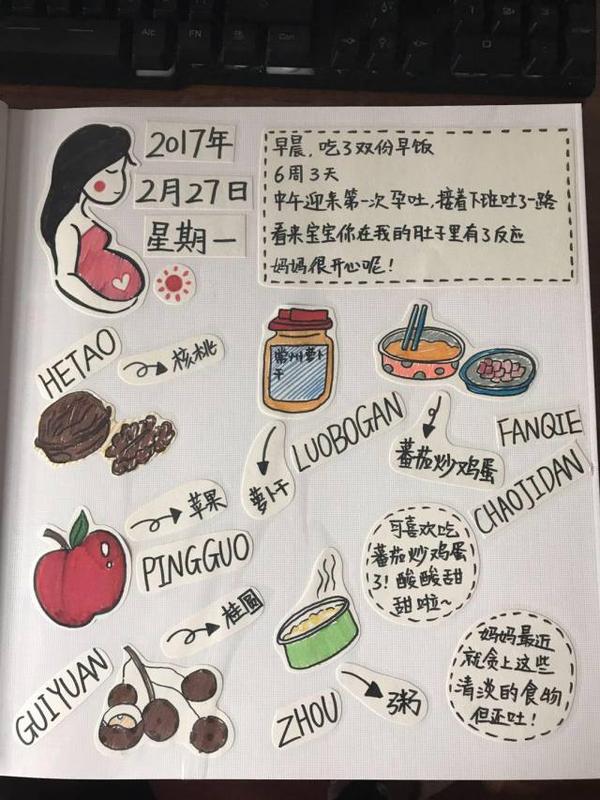 2017年
2月27日
星期一
早晨,吃了双份早饭
6周3天
中午迎来第一次孕吐,接着下班吐了一路
看来宝宝你在我的肚子里有了反应
妈妈很开心呢!
HETAO
核桃
常州萝卜
干
LUOBOGAN
萝卜干
番茄炒鸡蛋
FANQIE
CHAOJIDAN
苹果
PINGGUO
可喜欢吃
番茄炒鸡蛋
了!酸酸甜
甜啦~
桂圆
GUIYUAN
ZHOU
粥
妈妈最近
就贪上这些
清淡的食物
但还吐!